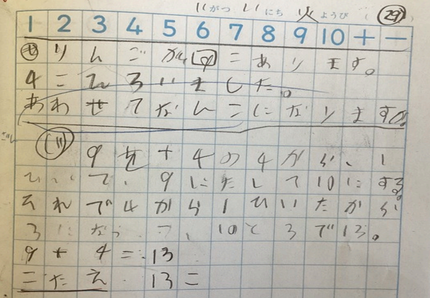 がつ にち 火 ようび
1 2 3 4 5 6 7 8 9 10 + −
りんごが 9 こ あります。
4こ もらいました。
あわせてなんこになりますか。
9 + 4の4から、1
ひいて、9にたして10にする
それで4から1ひいたから
3に 、10と3で13。
9+4=13
こたえ 13こ